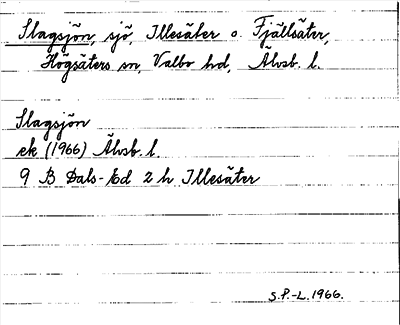 Slagsjön, sjö, Illesäter o. Fjällsäter,
Högsäters sn, Valbo hd, Älvsb. l.
Slagsjön
ek (1966) Älvsb. l.
9 B Dals-Ed 2 h Illesäter
S.P.-L. 1966.